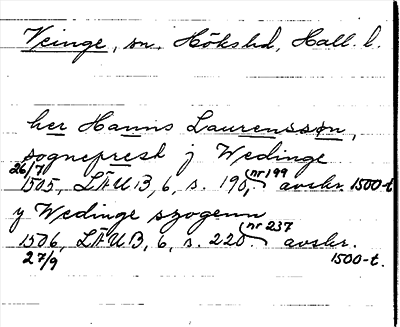 Veinge, sn, Höks hd, Hall. l.
her Hanns Laurensszøn,
sogneprest j Wedinge
26/7 1505, LÄUB, 6, s. 190, (nr 199) avskr. 1500-t
y Wedinge szogenn
1506, LÄUB, 6, s. 220. (nr 237) avskr.
27/9 1500-t.